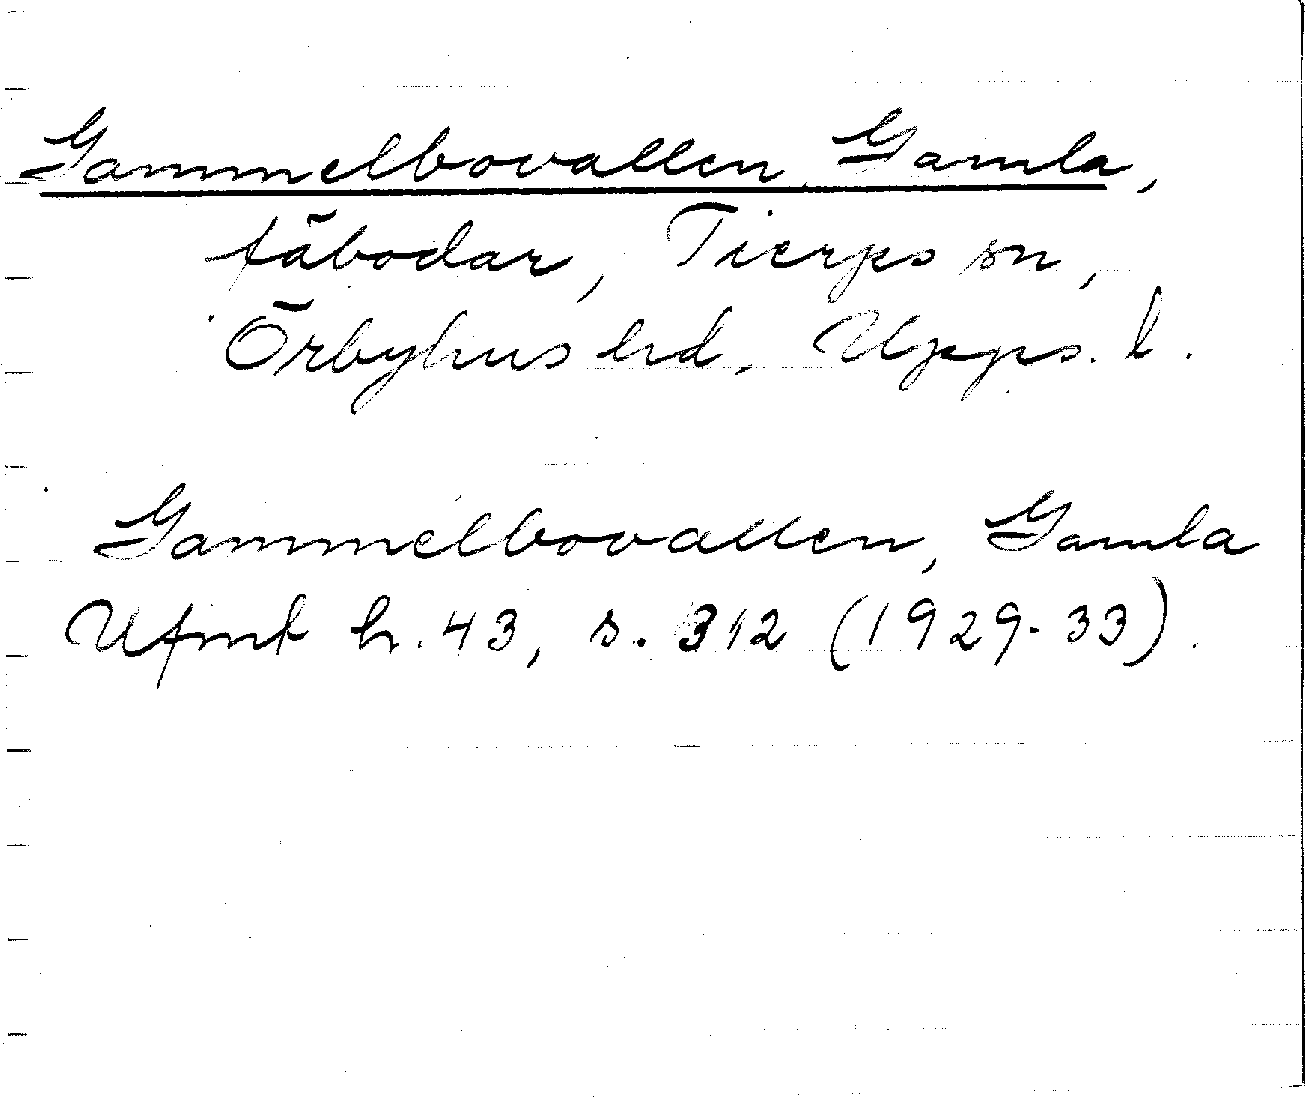 Gammelbovallen, Gamla,
fäbodar, Tierps sn,
Örbyhus hd, Upps. l.
Gammelbovallen, Gamla
Ufmt h. 43, s. 312 (1929-33).